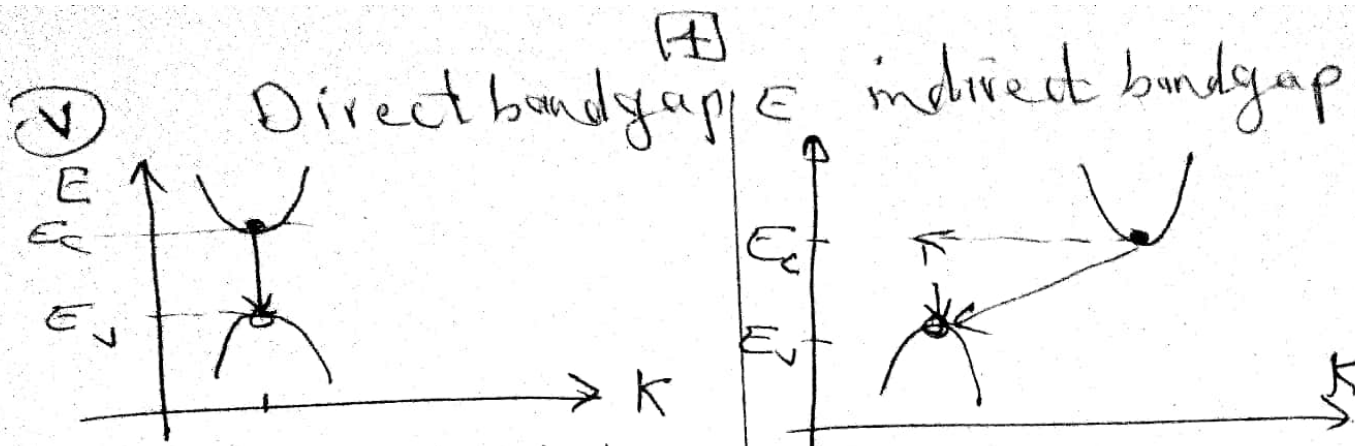 1
V Direct bandgap
E
Ec
Ev
K
E indirect bandgap
Ec
Ev
K